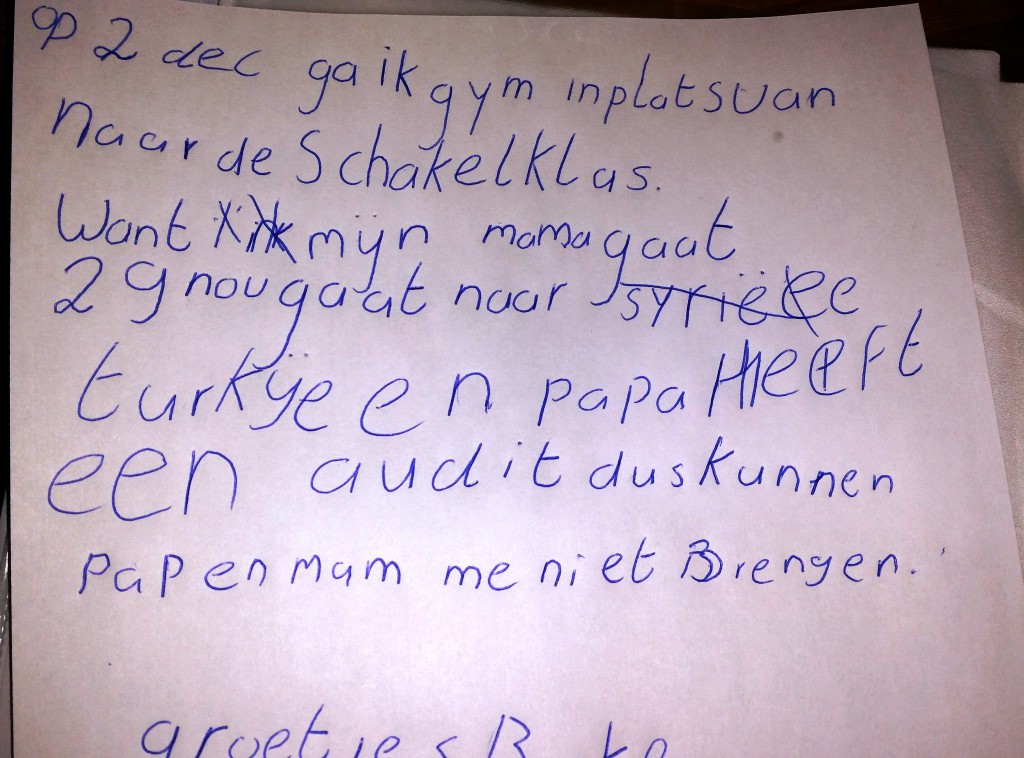 op 2 dec ga ik gym inplatsvan
naar de Schakelklas.
Want mijn mama gaat
29 nou gaat naar syrië
turkije en papa Heeft
een audit dus kunnen
pap en mam me niet Brengen.
groetjes B